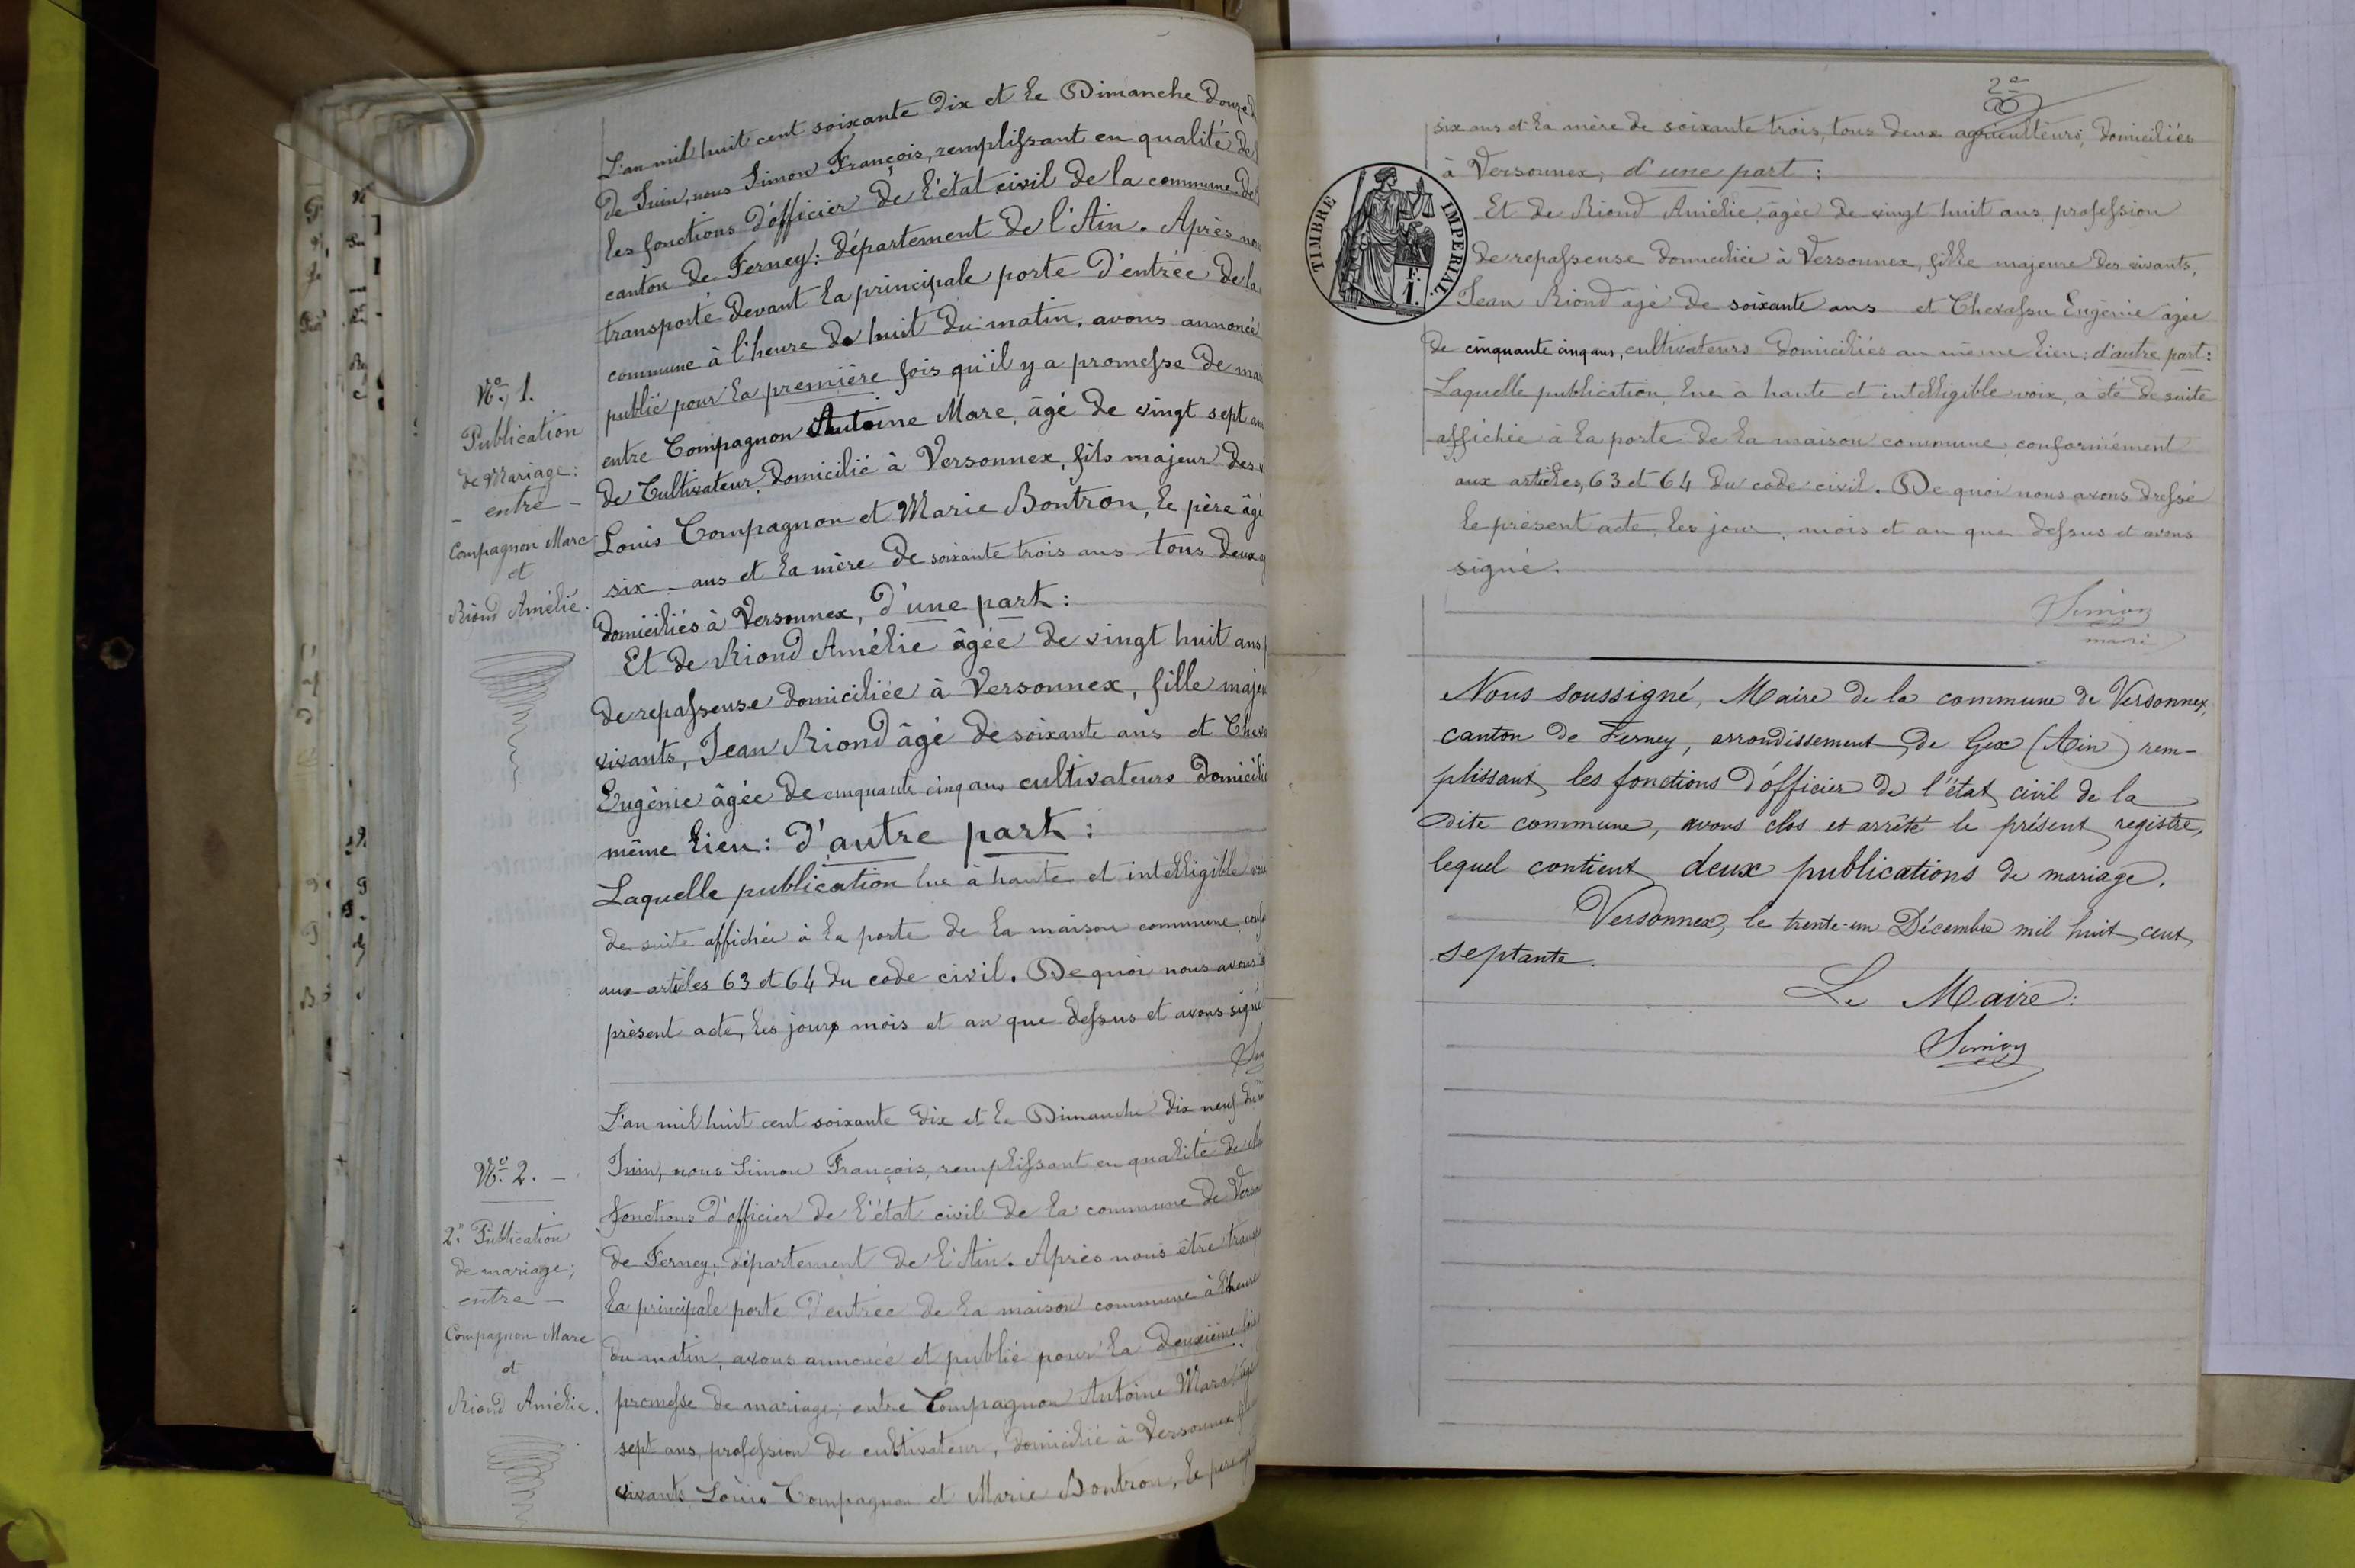 L'an mil huit cent soixante dix et le Dimanche douze
de Juin, nous Simon François, remplissant en qualité de
les fonctions d'officier de l'état civil de la commune de
canton de Ferney; département de l'Ain. Après
transporté devant la principale porte d'entrée de la
commune à l'heure de huit du matin, avons annoncé
publié pour la première fois qu'il y a promesse de
entre Compagnon Antoine Marc, âgé de vingt sept
de Cultivateur, domicilié à Versonnex, fils majeur des
Louis Compagnon et Marie Bontron, le père âgé
six ans et la mère de soixante trois ans tous deux
domiciliés à Versonnex, d'une part:
Et de Riond Amélie âgée de vingt huit ans
de repasseuse domiciliée à Versonnex, fille
vivants, Jean Riond âgé de soixante ans et
Eugénie âgée de cinquante cinq ans cultivateurs
même lieu: d'autre part:
Laquelle publication lue à haute et intelligible
de suite affichée à la porte de la maison commune
aux articles 63 et 64 du code civil. De quoi nous avons
présent acte, les jours mois et an que dessus et avons signé
No. 1.
Publication
de Mariage:
- entre -
Compagnon Marc
et
Riond Amélie.
L'an mil huit cent soixante dix et le Dimanche dix neuf
Juin, nous Simon François, remplissant en qualité de
fonctions d'officier de l'état civil de la commune de
de Ferney; département de l'Ain. Après nous être
la principale porte d'entrée de la maison commune à l'heure
du matin, avons annoncé et publié pour la deuxième fois
promesse de mariage; entre Compagnon Antoine Marc
sept ans, profession de cultivateur, domicilié à Versonnex
vivants Louis Compagnon et Marie Bontron, le père
No. 2. -
2e Publication
de mariage;
entre -
Compagnon Marc
et
Riond Amélie.
2e
six ans et la mère de soixante trois, tous deux agriculteurs, domiciliés
à Versonnex; d'une part:
Et de Riond Amélie, âgée de vingt huit ans, profession
de repasseuse domiciliée à Versonnex, fille majeure des vivants,
Jean Riond âgé de soixante ans et Chevassu Eugénie âgée
de cinquante cinq ans, cultivateurs domiciliés au même lieu; d'autre part:
Laquelle publication, lue à haute et intelligible voix, a été de suite
affichée à la porte de la maison commune, conformément
aux articles, 63 et 64 du code civil. De quoi nous avons dressé
le présent acte, les jour, mois et an que dessus et avons
signé.
Simon
maire
TIMBRE IMPERIAL.
F. 1.
Nous soussigné, Maire de la commune de Versonnex,
canton de Ferney, arrondissement de Gex (Ain) rem-
plissant les fonctions d'officier de l'état civil de la
dite commune, avons clos et arrêté le présent registre,
lequel contient deux publications de mariage.
Versonnex, le trente-un Décembre mil huit cent
septante.
Le Maire:
Simon